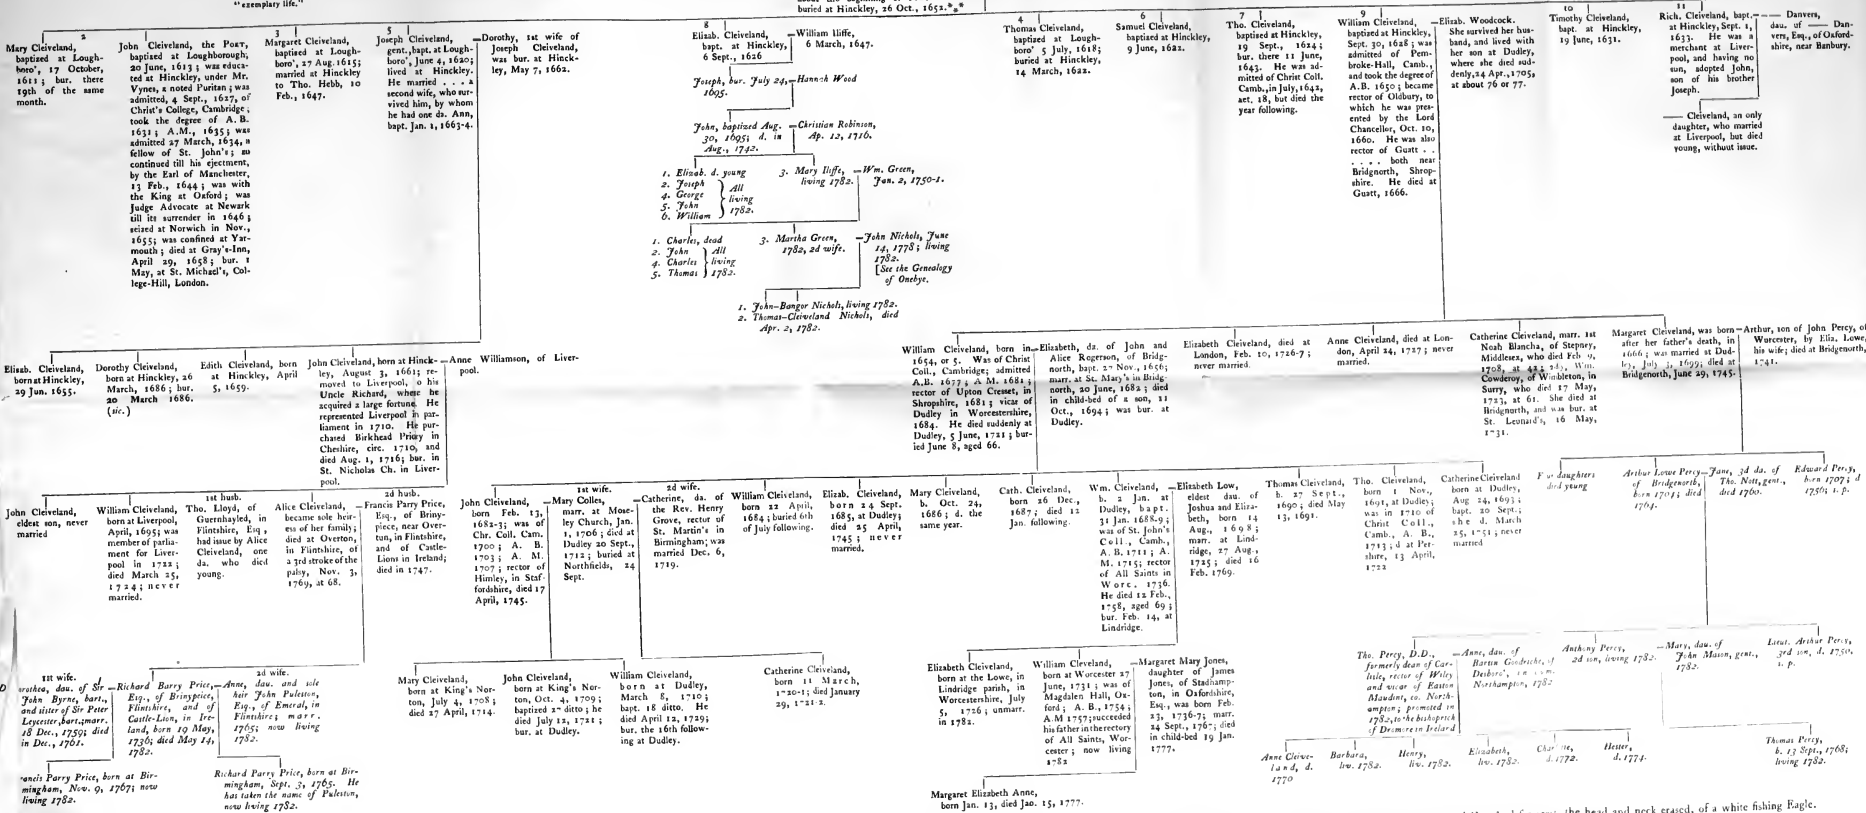 "exemplary life."
buried at Hinckley, 26 Oct., 1652.*⁎*
2
Mary Cleiveland,
baptized at Lough-
boro', 17 October,
1611; bur. there
19th of the same
month.
John Cleiveland, the POET,
baptized at Loughborough,
20 June, 1613; was educa-
ted at Hinckley, under Mr.
Vynes, a noted Puritan; was
admitted, 4 Sept., 1627, of
Christ's College, Cambridge;
took the degree of A. B.
1631; A.M., 1635; was
admitted 27 March, 1634, a
fellow of St. John's; so
continued till his ejectment,
by the Earl of Manchester,
13 Feb., 1644; was with
the King at Oxford; was
Judge Advocate at Newark
till its surrender in 1646;
seized at Norwich in Nov.,
1655; was confined at Yar-
mouth; died at Gray's-Inn,
April 29, 1658; bur. 1
May, at St. Michael's, Col-
lege-Hill, London.
3
Margaret Cleiveland,
baptized at Lough-
boro', 27 Aug. 1615;
married at Hinckley
to Tho. Hebb, 10
Feb., 1647.
5
Joseph Cleiveland,
gent., bapt. at Lough-
boro', June 4, 1620;
lived at Hinckley.
He married . . . a
second wife, who sur-
vived him, by whom
he had one da. Ann,
bapt. Jan. 1, 1663-4.
—Dorothy, 1st wife of
Joseph Cleiveland,
was bur. at Hinck-
ley, May 7, 1662.
8
Elizab. Cleiveland,
bapt. at Hinckley,
6 Sept., 1626
—William Iliffe,
6 March, 1647.
Joseph, bur. July 24,
1695.
—Hannah Wood
John, baptized Aug.
30, 1695; d. in
Aug., 1742.
—Christian Robinson,
Ap. 12, 1716.
1. Elizab. d. young
2. Joseph
4. George
5. John
6. William
All
living
1782.
3. Mary Iliffe,
living 1782.
—Wm. Green,
Jan. 2, 1750-1.
1. Charles, dead
2. John
4. Charles
5. Thomas
All
living
1782.
3. Martha Green,
1782, 2d wife.
—John Nichols, June
14, 1778; living
1782.
[See the Genealogy
of Onebye.
1. John-Bangor Nichols, living 1782.
2. Thomas-Cleiveland Nichols, died
Apr. 2, 1782.
4
Thomas Cleiveland,
baptized at Lough-
boro' 5 July, 1618;
buried at Hinckley,
14 March, 1622.
6
Samuel Cleiveland,
baptized at Hinckley,
9 June, 1622.
7
Tho. Cleiveland,
baptized at Hinckley,
19 Sept., 1624;
bur. there 11 June,
1643. He was ad-
mitted of Christ Coll.
Camb., in July, 1642,
aet. 18, but died the
year following.
9
William Cleiveland,
baptized at Hinckley,
Sept. 30, 1628; was
admitted of Pem-
broke-Hall, Camb.,
and took the degree of
A.B. 1650; became
rector of Oldbury, to
which he was pres-
ented by the Lord
Chancellor, Oct. 10,
1660. He was also
rector of Quatt . .
. . . . both near
Bridgnorth, Shrop-
shire. He died at
Quatt, 1666.
—Elizab. Woodcock.
She survived her hus-
band, and lived with
her son at Dudley,
where she died sud-
denly, 24 Apr., 1705,
at about 76 or 77.
10
Timothy Cleiveland,
bapt. at Hinckley,
19 June, 1631.
11
Rich. Cleiveland, bapt.
at Hinckley, Sept. 1,
1633. He was a
merchant at Liver-
pool, and having no
son, adopted John,
son of his brother
Joseph.
—— Danvers,
dau. of —— Dan-
vers, Esq., of Oxford-
shire, near Banbury.
—— Cleiveland, an only
daughter, who married
at Liverpool, but died
young, without issue.
Elisab. Cleiveland,
born at Hinckley,
29 Jun. 1655.
Dorothy Cleiveland,
born at Hinckley, 26
March, 1686; bur.
20 March 1686.
(sic.)
Edith Cleiveland, born
at Hinckley, April
5, 1659.
John Cleiveland, born at Hinck-
ley, August 3, 1661; re-
moved to Liverpool, to his
Uncle Richard, where he
acquired a large fortune. He
represented Liverpool in par-
liament in 1710. He pur-
chased Birkhead Priory in
Cheshire, circ. 1710, and
died Aug. 1, 1716; bur. in
St. Nicholas Ch. in Liver-
pool.
—Anne Williamson, of Liver-
pool.
William Cleiveland, born in
1654, or 5. Was of Christ
Coll., Cambridge; admitted
A.B. 1677; A M. 1681;
rector of Upton Cresset, in
Shropshire, 1681; vicar of
Dudley in Worcestershire,
1684. He died suddenly at
Dudley, 5 June, 1721; bur-
ied June 8, aged 66.
—Elizabeth, da. of John and
Alice Rogerson, of Bridg-
north, bapt. 27 Nov., 1656;
marr. at St. Mary's in Bridg-
north, 20 June, 1682; died
in child-bed of a son, 11
Oct., 1694; was bur. at
Dudley.
Elizabeth Cleiveland, died at
London, Feb. 10, 1726-7;
never married.
Anne Cleiveland, died at Lon-
don, April 24, 1727; never
married.
Catherine Cleiveland, marr. 1st
Noah Blancha, of Stepney,
Middlesex, who died Feb 9,
1708, at 42; 2dly, Wm.
Cowderoy, of Wimbleton, in
Surry, who died 17 May,
1723, at 61. She died at
Bridgnorth, and was bur. at
St. Leonard's, 16 May,
1731.
Margaret Cleiveland, was born
after her father's death, in
1666; was married at Dud-
ley, July 3, 1699; died at
Bridgenorth, June 29, 1745.
—Arthur, son of John Percy, of
Worcester, by Eliz. Lowe,
his wife; died at Bridgenorth,
1741.
John Cleiveland,
eldest son, never
married
William Cleiveland,
born at Liverpool,
April, 1695; was
member of parlia-
ment for Liver-
pool in 1722;
died March 25,
1724; never
married.
1st husb.
Tho. Lloyd, of
Guernhayled, in
Flintshire, Esq.,
had issue by Alice
Cleiveland, one
da. who died
young.
Alice Cleiveland,
became sole heir-
ess of her family;
died at Overton,
in Flintshire, of
a 3rd stroke of the
palsy, Nov. 3,
1769, at 68.
2d husb.
—Francis Parry Price,
Esq., of Briny-
piece, near Over-
ton, in Flintshire,
and of Castle-
Lions in Ireland;
died in 1747.
John Cleiveland,
born Feb. 13,
1682-3; was of
Chr. Coll. Cam.
1700; A. B.
1703; A. M.
1707; rector of
Himley, in Staf-
fordshire, died 17
April, 1745.
1st wife.
—Mary Colles,
marr. at Mose-
ley Church, Jan.
1, 1706; died at
Dudley 20 Sept.,
1712; buried at
Northfields, 24
Sept.
2d wife.
—Catherine, da. of
the Rev. Henry
Grove, rector of
St. Martin's in
Birmingham; was
married Dec. 6,
1719.
William Cleiveland,
born 22 April,
1684; buried 6th
of July following.
Elizab. Cleiveland,
born 24 Sept.
1685, at Dudley;
died 25 April,
1745; never
married.
Mary Cleiveland,
b. Oct. 24,
1686; d. the
same year.
Cath. Cleiveland,
born 26 Dec.,
1687; died 12
Jan. following.
Wm. Cleiveland,
b. 2 Jan. at
Dudley, bapt.
31 Jan. 1688-9;
was of St. John's
Coll., Camb.,
A. B. 1711; A.
M. 1715; rector
of All Saints in
Worc. 1736.
He died 12 Feb.,
1758, aged 69;
bur. Feb. 14, at
Lindridge.
—Elizabeth Low,
eldest dau. of
Joshua and Eliza-
beth, born 14
Aug., 1698;
marr. at Lind-
ridge, 27 Aug.,
1725; died 16
Feb. 1769.
Thomas Cleiveland,
b. 27 Sept.,
1690; died May
13, 1691.
Tho. Cleiveland,
born 1 Nov.,
1691, at Dudley;
was in 1710 of
Christ Coll.,
Camb., A. B.,
1713; d at Per-
shire, 13 April,
1722
Catherine Cleiveland
born at Dudley,
Aug 24, 1693;
bapt. 20 Sept.;
she d. March
25, 1751; never
married
F ur daughters
died young
Arthur Lowe Percy
of Bridgenorth,
born 1704; died
1764.
—Jane, 3d da. of
Tho. Nott, gent.,
died 1760.
Edward Percy,
born 1707; d
1756; s. p.
1st wife.
orothea, dau. of Sir
John Byrne, bart.,
and sister of Sir Peter
Leycester, bart.; marr.
18 Dec., 1759; died
in Dec., 1761.
—Richard Barry Price,
Esq., of Brinypeice,
Flintshire, and of
Castle-Lion, in Ire-
land, born 19 May,
1736; died May 14,
1782.
2d wife.
—Anne, dau. and sole
heir John Puleston,
Esq., of Emeral, in
Flintshire; marr.
1765; now living
1782.
rancis Parry Price, born at Bir-
mingham, Nov. 9, 1767; now
living 1782.
Richard Parry Price, born at Bir-
mingham, Sept. 3, 1765. He
has taken the name of Puleston,
now living 1782.
Mary Cleiveland,
born at King's Nor-
ton, July 4, 1708;
died 27 April, 1714.
John Cleiveland,
born at King's Nor-
ton, Oct. 4, 1709;
baptized 27 ditto; he
died July 12, 1721;
bur. at Dudley.
William Cleiveland,
born at Dudley,
March 8, 1710;
bapt. 18 ditto. He
died April 12, 1729;
bur. the 16th follow-
ing at Dudley.
Catherine Cleiveland,
born 11 March,
1720-1; died January
29, 1721-2.
Elizabeth Cleiveland,
born at the Lowe, in
Lindridge parish, in
Worcestershire, July
5, 1726; unmarr.
in 1782.
William Cleiveland,
born at Worcester 27
June, 1731; was of
Magdalen Hall, Ox-
ford; A. B., 1754;
A.M 1757; succeeded
his father in the rectory
of All Saints, Wor-
cester; now living
1782
—Margaret Mary Jones,
daughter of James
Jones, of Stadhamp-
ton, in Oxfordshire,
Esq., was born Feb.
23, 1736-7; marr.
24 Sept., 1767; died
in child-bed 19 Jan.
1777.
Margaret Elizabeth Anne,
born Jan. 13, died Jan. 15, 1777.
Tho. Percy, D.D.,
formerly dean of Car-
lisle, rector of Wilby
and vicar of Easton
Maudint, co. North-
ampton; promoted in
1782, to the bishoprick
of Dromore in Ireland
—Anne, dau. of
Bartin Goodriche, of
Desboro', in com.
Northampton, 1782
Anthony Percy,
2d son, living 1782.
—Mary, dau. of
John Mason, gent.,
1782.
Lieut. Arthur Percy,
3rd son, d. 1750,
s. p.
Anne Cleive-
land, d.
1770
Barbara,
liv. 1782.
Henry,
liv. 1782.
Elizabeth,
liv. 1782.
Charlotte,
d. 1772.
Hester,
d. 1774.
Thomas Percy,
b. 13 Sept., 1768;
living 1782.
the head and neck erased, of a white fishing Eagle.